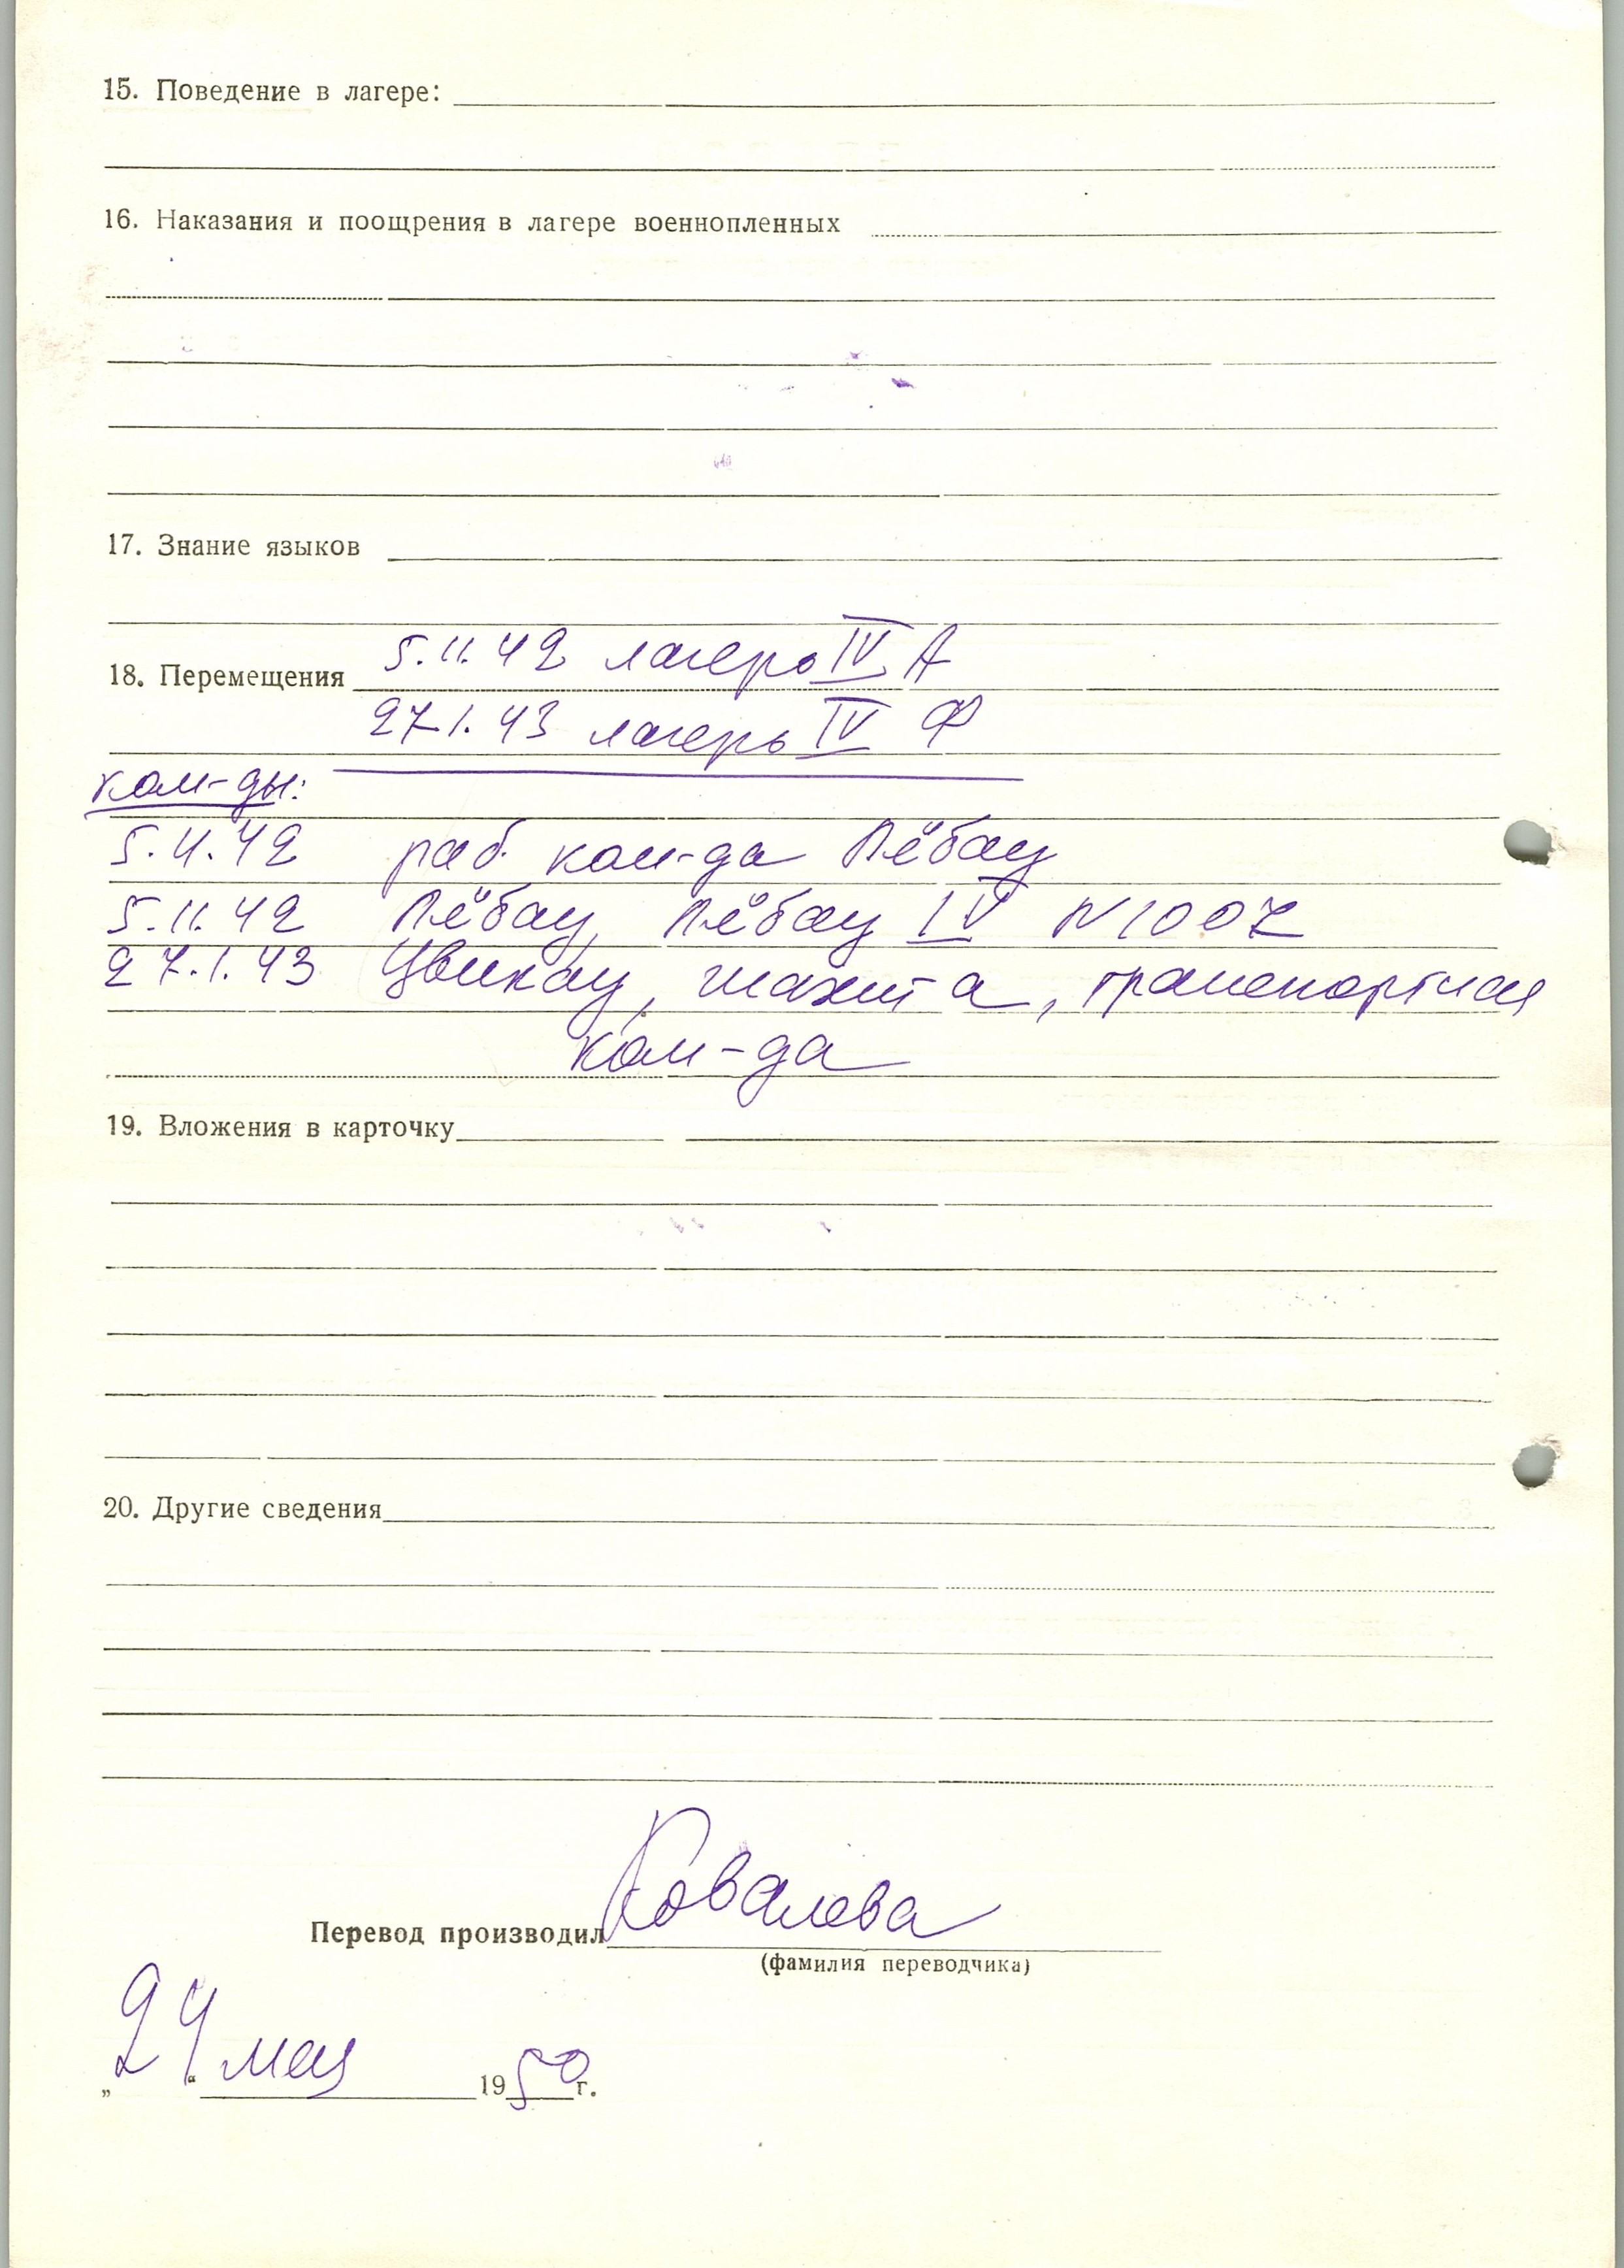 15. Поведение в лагере:
16. Наказания и поощрения в лагере военнопленных
17. Знание языков
18. Перемещения 5.11.42 лагерь IV А
27.1.43 лагерь IV Ф
ком-ды:
5.11.42 раб. ком-да Лёбау
5.11.42 Лёбау, Лёбау IV N 1007
27.1.43 Цвикау, шахта, транспортная
ком-да
19. Вложения в карточку
20. Другие сведения
Перевод производил Ковалева
(фамилия переводчика)
„24“ мая 1950 г.